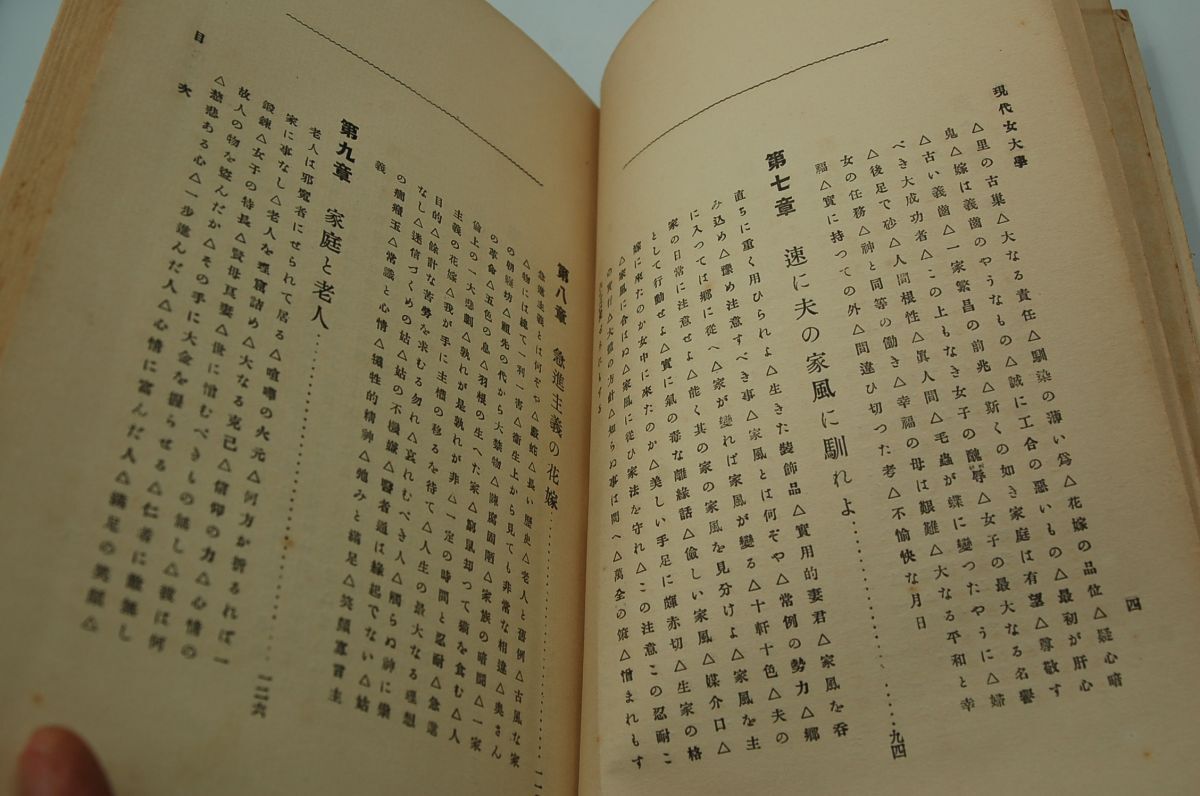 現代女大學
四
△里の古巣△大なる責任△馴染の薄い爲△花嫁の品位△疑心暗
鬼△嫁は義齒のやうなもの△誠に工合の惡いもの△最初が肝心
△古い義齒△一家繁昌の前兆△斯くの如き家庭は有望△尊敬す
べき大成功者△この上もなき女子の醜辱△女子の最大なる名譽
△後足で砂△人間根性△眞人間△毛蟲が蝶に變つたやうに△婦
女の任務△神と同等の働き△幸福の母は艱難△大なる平和と幸
福△實に持つての外△間違ひ切つた考△不愉快な月日
第七章 速に夫の家風に馴れよ…………九四
直ちに重く用ひられよ△生きた裝飾品△實用的妻君△家風を呑
み込め△豫め注意すべき事△家風とは何ぞや△常例の勢力△鄕
に入つては鄕に從へ△家が變れば家風が變る△十軒十色△夫の
家の日常に注意せよ△能く其の家の家風を見分けよ△家風を主
として行動せよ△實に氣の毒な離緣話△儉しい家風△媒介口△
嫁に來たのか女中に來たのか△美しい手足に輝赤切△生家の格
△家風に合はぬ△家風に從ひ家法を守れ△この注意この忍耐こ
の實行△大體の方針△知らぬ事は問へ△萬全の策△憎まれもす
第八章 急進主義の花嫁…………
急進主義とは何ぞや△嚴姑△長い歷史△老人と舊例△古風な家
△物には總て一利一害△衞生上から見ても非常な相違△奥さん
の朝寢坊△祖先の代から大禁物△陳腐固陋△家族の暗鬪△一家
の革命△五色の息△羽根の生へた家△窮鼠却つて猫を食む△人
倫上の一大悲劇△孰れが是孰れが非△一定の時間と忍耐△急進
主義の花嫁△我が手に主權の移るを待て△人生の最大なる理想
目的△餘計な苦勞を求むる勿れ△哀れむべき人△觸らぬ神に祟
なし△迷信づくめの姑△姑の不機嫌△醫者通は緣起でない△姑
の癇癪玉△常識と心情△犧牲的精神△勉みと滿足△笑顏寬嘗主
義
第九章 家庭と老人…………一二六
老人は邪魔者にせられて居る△喧嘩の火元△何方が折るれば一
家に事なし△老人な理窟詰め△大なる克己△信仰の力△心情の
鍛鍊△女子の特長△賢母良妻△世に憎むべきもの無し△彼は何
故人の物を盗んだか△その手に大金を握らせる△仁者に敵無し
△慈悲ある心△一步進んだ人△心情に富んだ人△滿足の笑顏△
目次